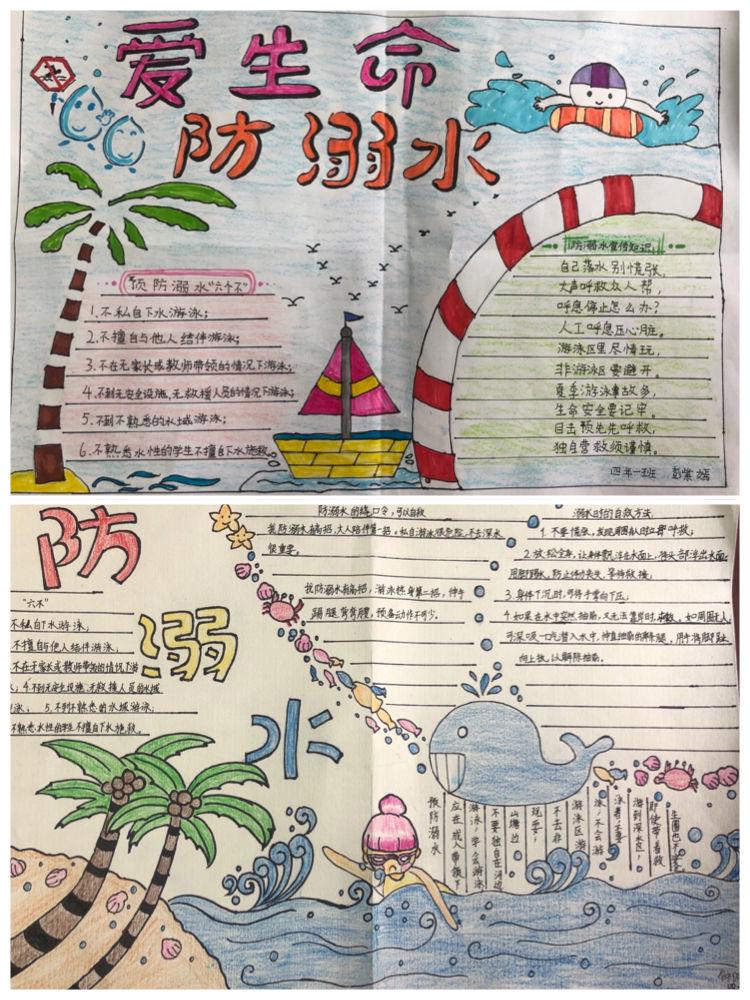 爱生命
防溺水
预防溺水"六个不"
1.不私自下水游泳；
2.不擅自与他人结伴游泳；
3.不在无家长或教师带领的情况下游泳；
4.不到无安全设施、无救援人员的情况下游泳；
5.不到不熟悉的水域游泳；
6.不熟悉水性的学生不擅自下水施救。
防溺水宣传知识：
自己落水别慌张，
大声呼救众人帮，
呼息停止怎么办？
人工呼息压心脏。
游泳区里尽情玩，
非游泳区要避开。
夏季游泳事故多，
生命安全要记牢。
目击预先先呼救，
独自营救须谨慎。
四年一班
防
溺
水
"六不"
不私自下水游泳；
不擅自与他人结伴游泳；
不在无家长或教师带领的情况下游
4.不到无安全设施、无救援人员的水域
泳； 5.不到不熟悉的水域游泳；
不熟悉水性的学生不擅自下水施救。
防溺水的绕口令，可以自救
我防溺水有高招，大人陪伴第一招。私自游泳很危险，不去深水
很重要。
我防溺水有高招，游泳热身第一招，伸手
踢腿弯弯腰，预备动作不可少。
溺水时的自救方法：
1.不要慌张，发现周围有人时立即呼救；
2.放松全身，让身体飘浮在水面上，将头部浮出水面，
用脚踢水，防止体力丧失，等待救援；
3.身体下沉时，可将手掌向下压；
4.如果在水中突然抽筋，又无法靠岸时，求救。如周围无人
可深吸一口气潜入水中，伸直抽筋的那条腿，用手将脚趾
向上扳，以解除抽筋。
预防溺水
应在成人带领下
游泳，学会游泳
不要独自在河边
山塘边
玩耍；
不去非
游泳区游
泳；不会游
泳者，不要
游到深水区，
即使带着救
生圈也不安全